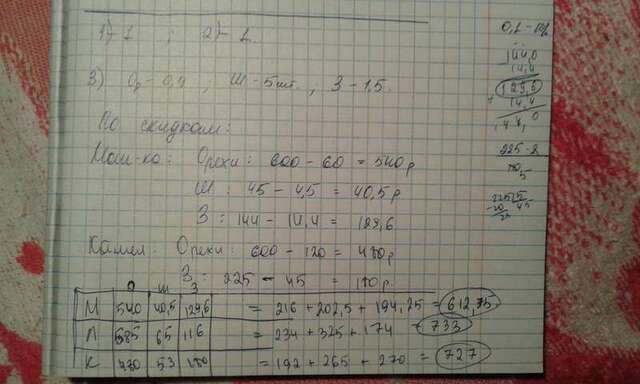 1) - 1 ; 2) - 1
3) Ор - 0,4 , Ш - 5 шт. , З - 1,5.
По скидкам:
Маш-ка: Орехи: 600 - 60 = 540 р
Ш: 45 - 4,5 = 40,5 р
З : 144 - 14,4 = 129,6
Камел. Орехи: 600 - 120 = 480 р
З : 225 - 45 = 180 р
О Ш З
М 540 40,5 129,6 = 216 + 202,5 + 194,25 = 612,75
Л 585 65 116 = 234 + 325 + 174 = 733
К 480 53 180 = 192 + 265 + 270 = 727
144,0
14,4
129,6
14,4
144,0
225